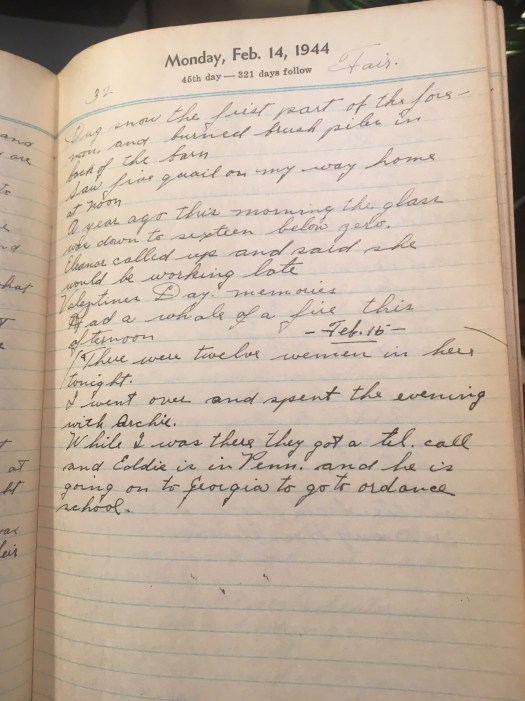 Monday, Feb. 14, 1944
45th day — 321 days follow
Fair.
32
Dug snow the first part of the fore-
noon and burned brush piles in
back of the barn
Saw five quail on my way home
at noon
A year ago this morning the glass
was down to sixteen below zero.
Eleanor called up and said she
would be working late
Valentines Day. memories
Had a whale of a fire this
afternoon
-Feb. 15-
There were twelve women in here
tonight.
I went over and spent the evening
with Archie.
While I was there they got a tel. call
and Eddie is in Penn. and he is
going on to Georgia to go to ordance
school.
and
are
to
hat
at